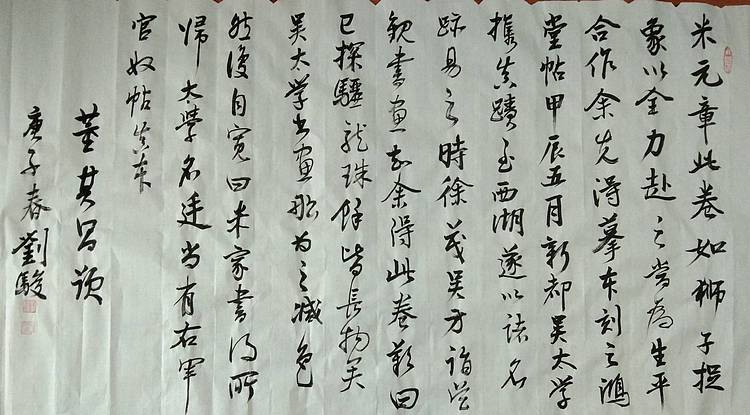 米元章此卷如狮子捉
象以全力赴之當为生平
合作余先得摹本刻之鸿
堂帖甲辰五月新都吴太学
携真蹟至西湖遂以诸名
跡易之時徐茂吴方诣吴
观書画知余得此卷歎曰
已探驪龙珠餘皆長物矣
吴太学书画船为之减色
然復自宽曰米家書得所
归太學名廷尚有右军
官奴帖真本
董其昌题
庚子春劉駿